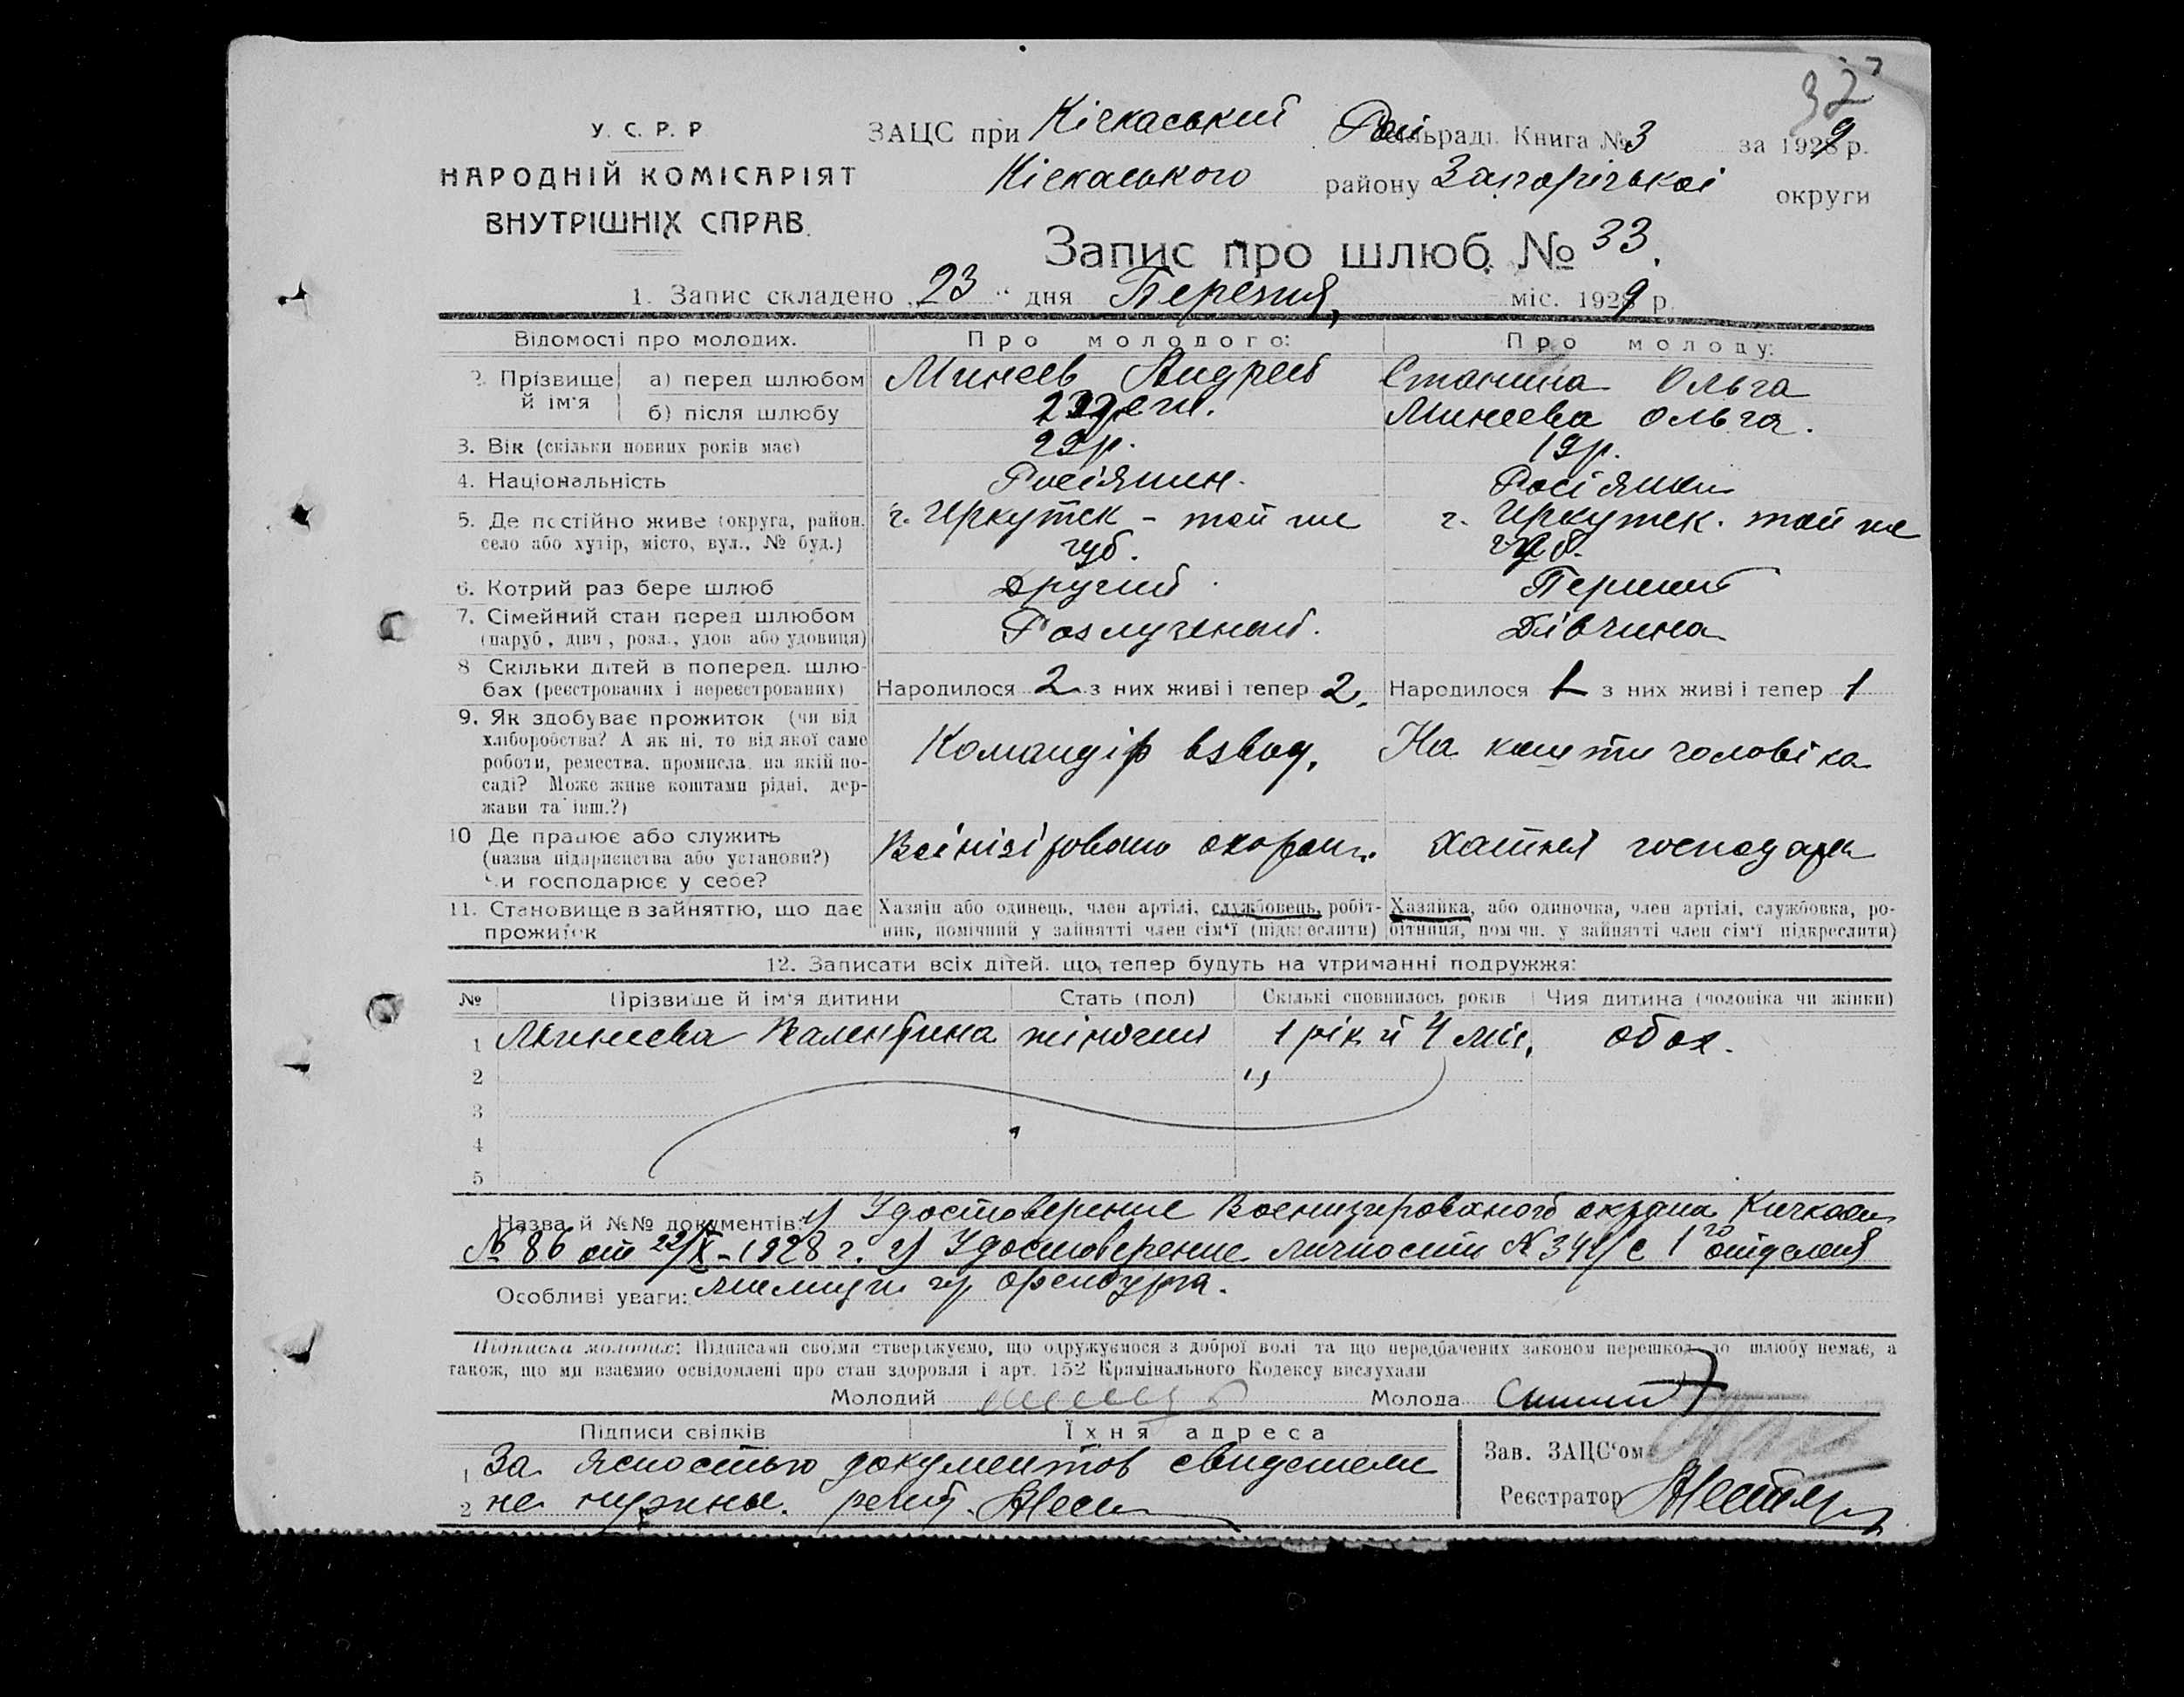 37
У. С. Р. Р
НАРОДНІЙ КОМІСАРІЯТ
ВНУТРІШНІХ СПРАВ.
ЗАЦС при Кічкаський Рай сільраді. Книга № 3 за 1929 р.
Кічкаського району Запорізькоі округи
Запис про шлюб № 33.
1. Запис складено „23“ дня Березня, міс. 1929 р.
Відомості про молодих. Про молодого: Про молоду:
2. Прізвище й ім'я а) перед шлюбом Минеев Андрей Станина Ольга
б) після шлюбу Минеева Ольга.
3. Вік (скільки повних років має) 29р. 19р.
4. Національність Росіянин. Росіянка
5. Де постійно живе (округа, район, г. Иркутск - той же г. Иркутск. той же
село або хутір, місто, вул., № буд.) губ. губ.
6. Котрий раз бере шлюб Другий Перший
7. Сімейний стан перед шлюбом Розлученый. Дівчина
(паруб., дівч., розл., удов. або удовиця)
8 Скільки дітей в поперед. шлю-
бах (реєстрованих і нереєстрованих) Народилося 2 з них живі і тепер 2. Народилося 1 з них живі і тепер 1
9. Як здобуває прожиток (чи від
хліборобства? А як ні, то від якої саме Командір взвод. На кошти чоловіка
роботи, ремества, промисла, на якій по-
саді? Може живе коштами рідні, дер-
жави та інш.?)
10 Де працює або служить охорон. хатня господарка
(назва підприємства або установи?)
Чи господарює у себе?
11. Становище в зайняттю, що дає Хазяїн або одинець, член артілі, службовець, робіт- Хазяйка, або одиночка, член артілі, службовка, ро-
прожиток ник, помічний у зайнятті член сім'ї (підкреслити) бітниця, пом чн. у зайнятті член сім'ї підкреслити)
12. Записати всіх дітей, що, тепер будуть на утриманні подружжя:
№ Прізвище й ім'я дитини Стать (пол) Скількі сповнилось років Чия дитина (чоловіка чи жінки)
1 Минеева Валентина жіночий 1 рік й 4 міс. обох.
2
3
4
5
Назва й №№ документів: Удостоверение Военизированой охрана Кичкас
№ 86 от 22/X-1928 г. Удостоверение личности № 341/с 1го отделен
Особливі уваги: милиции гр Оренбурга.
Підписка молодих: Підписами своїми стверджуємо, що одружуємося з доброї волі та що передбачених законом перешкод до шлюбу немає, а
також, що ми взаємно освідомлені про стан здоровля і арт. 152 Крямінального Кодексу вислухали
Молодий Молода
Підписи свідків Їхня адреса
1 За ясностью документов свидетели
2 не нужны.
Зав. ЗАЦС'ом
Реєстратор